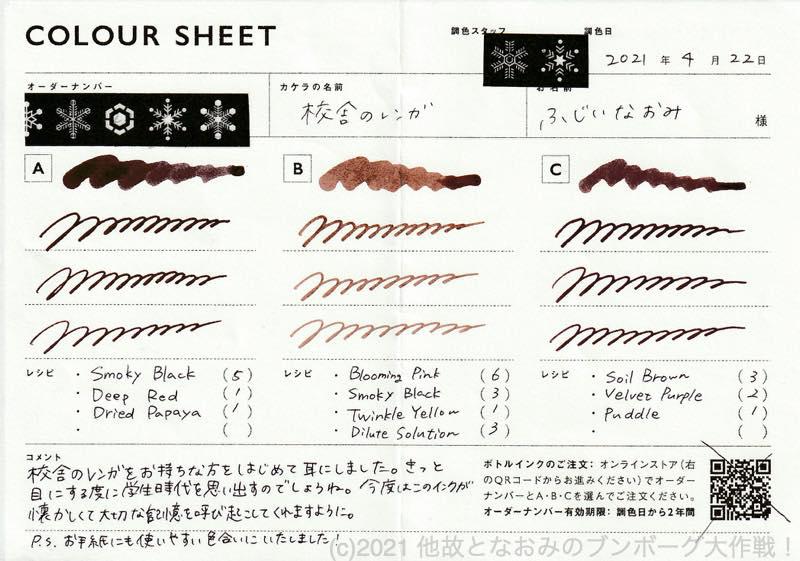 COLOUR SHEET
調色スタッフ
調色日
2021 年 4 月 22 日
オーダーナンバー
カケラの名前
校舎のレンガ
お名前
ふじいなおみ 様
A
B
C
レシピ
・ Smoky Black (5)
・ Deep Red (1)
・ Dried Papaya (1)
・ ( )
レシピ
・ Blooming Pink (6)
・ Smoky Black (3)
・ Twinkle Yellow (1)
・ Dilute Solution (3)
レシピ
・ Soil Brown (3)
・ Velvet Purple (2)
・ Puddle (1)
・ ( )
コメント
校舎のレンガをお持ちな方をはじめて耳にしました。きっと
目にする度に学生時代を思い出すのでしょうね。今度はこのインクが
懐かしくて大切な記憶を呼び起こしてくれますように。
P.S. お手紙にも使いやすい色合いにいたしました!
ボトルインクのご注文:オンラインストア(右
のQRコードからお進みください)でオーダー
ナンバーとA・B・Cを選んでご注文ください。
オーダーナンバー有効期限:調色日から2年間
(c)2021 他故となおみのブンボーグ大作戦!